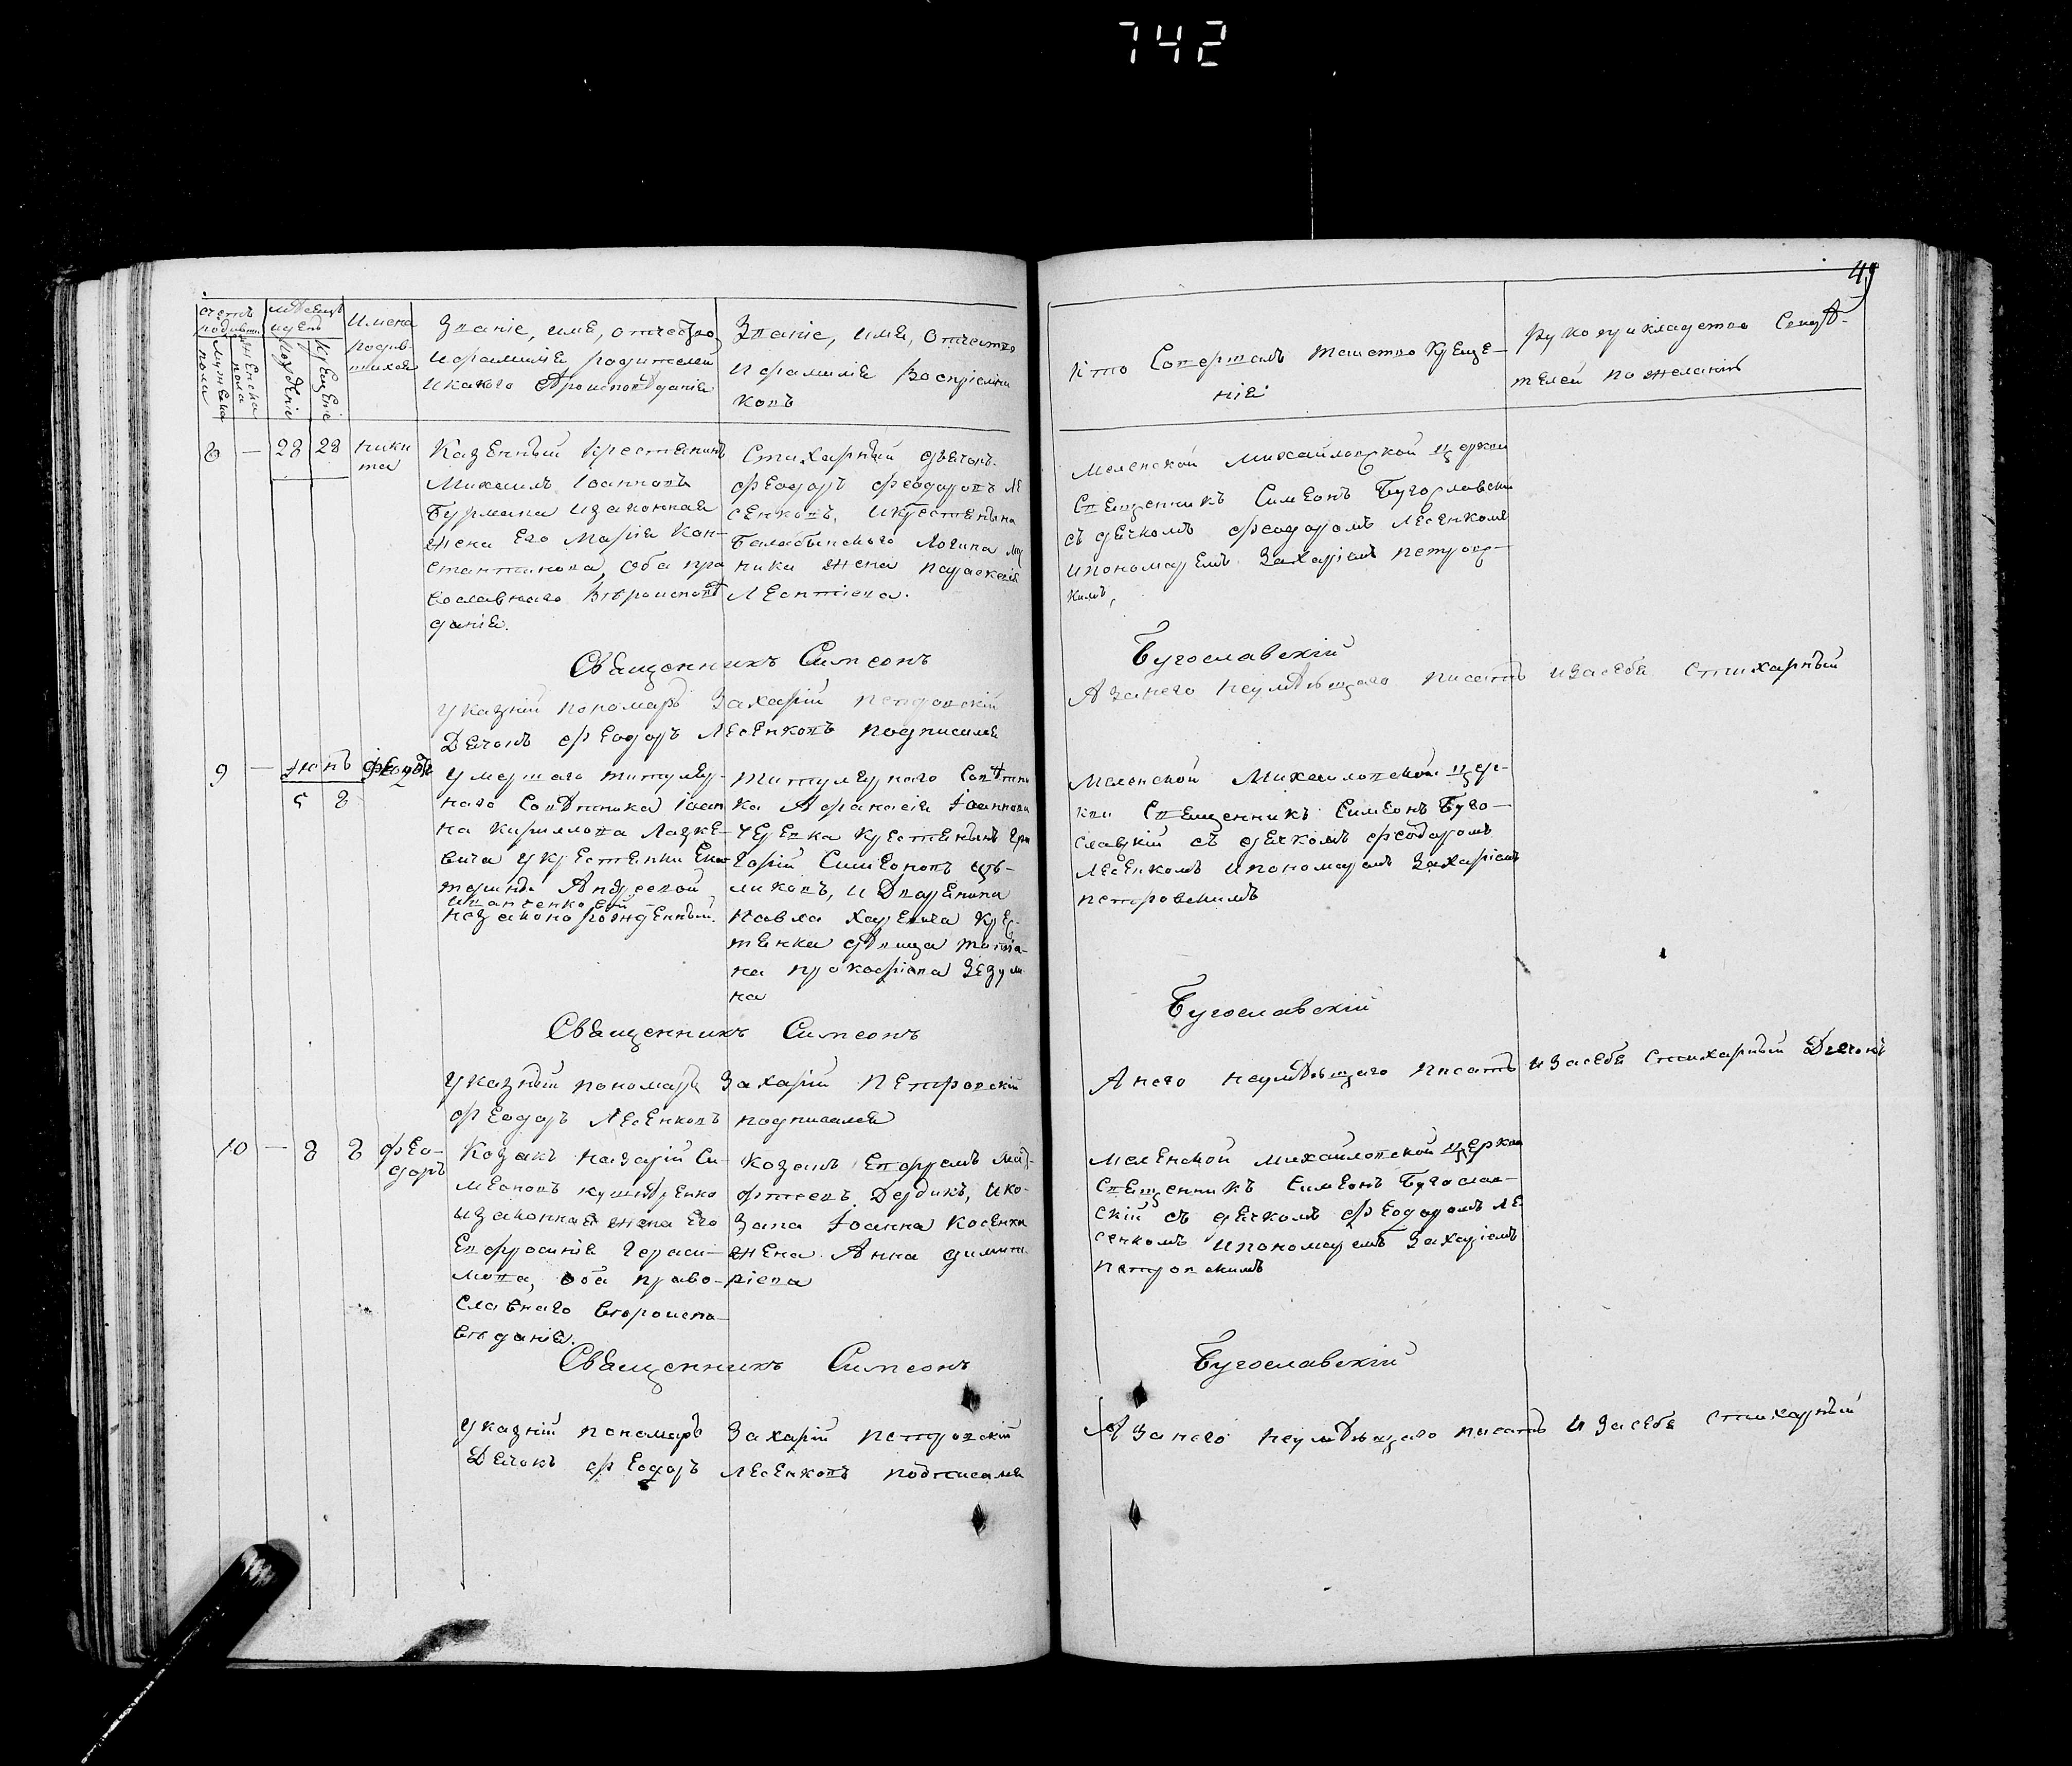 742
49
Счетъ родившихся
Мужеска пола
Женска пола
Мѣсяцъ и день
Рожденіе
Крещеніе
Имена родившихся
Званіе, имя, отчество,
и фамилія родителей
и какого вѣроисповѣданія
Званіе, имя, отчество
и фамилія Воспріемни
ковъ
Кто Совершалъ таинство Креще-
нія
Рукоприкладство Свидѣ-
телей по желанію
8 — 28 28 Ники
та
Казенный крестьянинъ
Михаилъ Іоанновъ
Бурмака и законная
жена его Марія Кон-
стантинова, оба пра
вославнаго вѣроисповѣ
данія.
Стихарный дьячокъ
Феодоръ Феодоровъ Ле
сенковъ, и крестьянина
Логина
жена Параскевія
Леонтіева.
Меленской Михайловской церкви
Священникъ Симеонъ Бугославскій
съ дячкомъ Феодоромъ Лесенкомъ
и пономаремъ Захаріемъ Петровс-
кимъ,
Священникъ Симеонъ Бугославскій
Указній пономарь Захарій Петровскій А за него неумѣющаго писать и за себя стихарный
Дячокъ Феодоръ Лесенковъ подписался
9 — Іюнь
5 8
Умершаго титуляр-
наго Совѣтника Іоан
на Кириллова Лазке-
вича у крестьянки Ека
терины Андреевой
незаконорожденный.
Титулярнаго Совѣтни
ка Афанасія Іоаннова
Черепка крестьянинъ Гри
горій Симеоновъ
ликовъ, и Дворянина
Павла Харевича крес-
тянка дѣвица Татіа-
на Прокофіева Зезули
на
Меленской Михайловской цер-
кви Священникъ Симеонъ Буго-
славскій съ дячкомъ Феодоромъ
Лесенкомъ и пономаремъ Захаріемъ
Петровскимъ
Священникъ Симеонъ Бугославскій
Указный пономарь Захарій Петровскій А него неумѣющаго писать и за себя стихарный Дячокъ
Феодоръ Лесенковъ подписался
10 — 8 8 Фео-
доръ
Козакъ Назарій Си-
меоновъ
и законная жена его
Евфросинія Гераси-
мова, оба право-
славнаго вѣроиспо-
вѣданія.
Козакъ Евфремъ Мат-
фтеевъ Дердикъ, и ко-
зака Іоанна Косенка
жена Анна Димит
ріева
Меленской Михайловской церкви
Священникъ Симеонъ Бугослав-
скій съ дячкомъ Феодоромъ Ле
сенкомъ и пономаремъ Захаріемъ
Петровскимъ
Священникъ Симеонъ Бугославскій
Указній пономарь Захарій Петровскій А за него неумѣющаго писать и за себя стихарный
Дячокъ Феодоръ Лесенковъ подписался